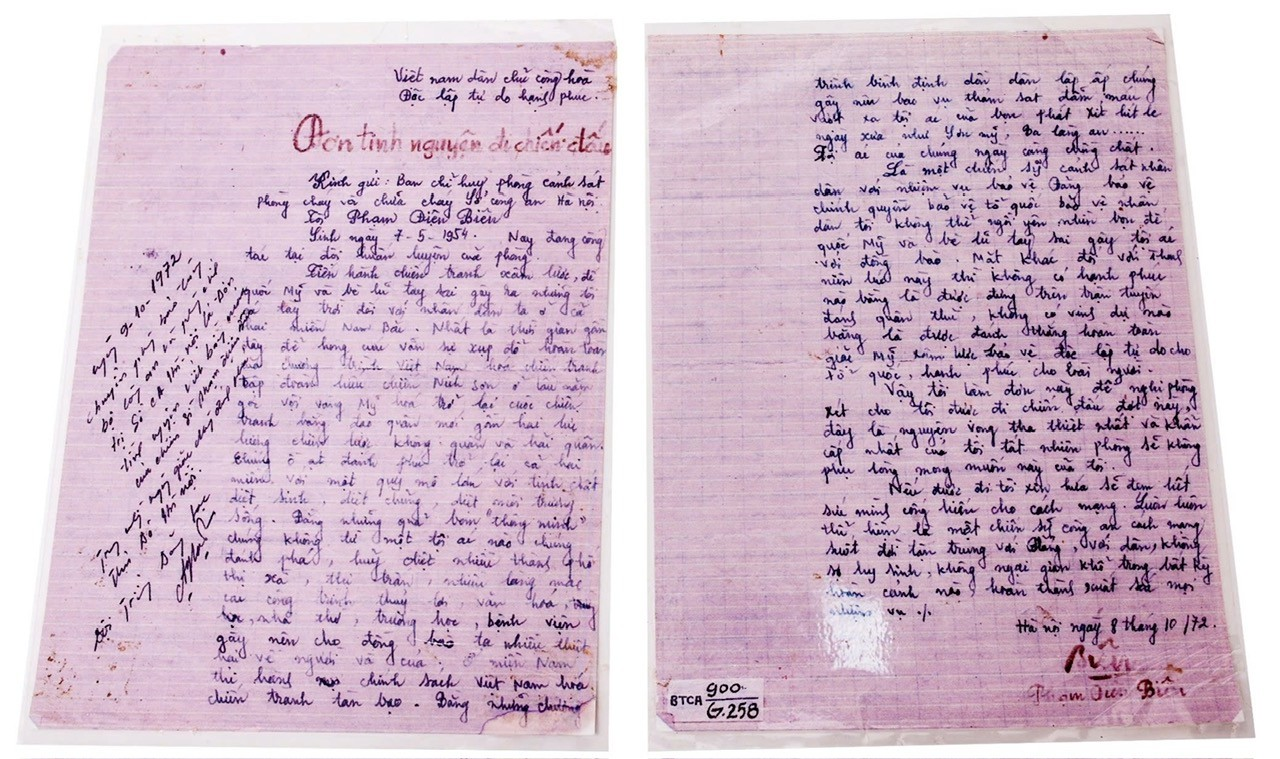 Việt nam dân chủ cộng hoà
Độc lập tự do hạnh phúc.
Đơn tình nguyện đi chiến đấu
Kính gửi: Ban chỉ huy phòng cảnh sát
phòng cháy và chữa cháy Sở công an Hà nội.
Tôi Phạm Điện Biên
Sinh ngày 7-5-1954. Nay đang công
tác tại đội huấn luyện của phòng.
Tiến hành chiến tranh xâm lược, đế
quốc Mỹ và bè lũ tay sai gây ra những tội
ác tày trời đối với nhân dân ta ở cả
hai miền Nam Bắc. Nhất là thời gian gần
đây để hòng cứu vãn sự sụp đổ hoàn toàn
của chương trình Việt Nam hoá chiến tranh
tập đoàn hiếu chiến Ních sơn ở lầu năm
góc vội vàng Mỹ hoá trở lại cuộc chiến
tranh bằng đạo quân mới gồm hai lực
lượng chiến lược không quân và hải quân.
Chúng ồ ạt đánh phá trở lại cả hai
miền với một quy mô lớn với tính chất
diệt sinh, diệt chủng, diệt môi trường
sống. Bằng những quả bom "thông minh"
chúng không từ một tội ác nào chúng
đánh phá, huỷ diệt nhiều thành phố
thị xã, thị trấn, nhiều làng mạc
các công trình thuỷ lợi, văn hoá,
nhà thờ, trường học, bệnh viện
gây nên cho đồng bào ta nhiều thiệt
hại về người và của. Ở miền Nam
thi hành chính sách Việt Nam hoá
chiến tranh tàn bạo. Bằng những chương
ngày 9-10-1972
chuyển
bộ công an
đ/c Lê Đôn
tình nguyện viết bằng máu
của chiến sĩ Phạm điện Biên
Thủ Đô Hà nội.
trình bình định dồn dân lập ấp chúng
gây nên bao vụ thảm sát đẫm máu
vượt xa tội ác của bọn phát xít hít le
ngày xưa như Sơn mỹ, Ba làng an......
Tội ác của chúng ngày càng chồng chất.
Là một chiến sỹ cảnh sát nhân
dân với nhiệm vụ bảo vệ Đảng bảo vệ
chính quyền bảo vệ tổ quốc bảo vệ nhân
dân tôi không thể ngồi yên nhìn bọn đế
quốc Mỹ và bè lũ tay sai gây tội ác
với đồng bào. Mặt khác đối với thanh
niên lúc này thì không có hạnh phúc
nào bằng là được đứng trên trận tuyến
đánh quân thù, không có vinh dự nào
bằng là được đánh thắng hoàn toàn
giặc Mỹ xâm lược bảo vệ độc lập tự do cho
tổ quốc, hạnh phúc cho loài người.
Vậy tôi làm đơn này đề nghị phòng
xét cho tôi được đi chiến đấu đợt này,
đây là nguyện vọng tha thiết nhất và khẩn
cấp nhất của tôi tất nhiên phòng sẽ không
phụ lòng mong muốn này của tôi.
Nếu được đi tôi xin hứa sẽ đem hết
sức mình cống hiến cho cách mạng. Luôn luôn
thể hiện là một chiến sỹ công an cách mạng
suốt đời tận trung với Đảng, với dân, không
sợ hy sinh, không ngại gian khổ trong bất kỳ
hoàn cảnh nào, hoàn thành xuất sắc mọi
nhiệm vụ ./.
Hà nội ngày 8 tháng 10/72.
Biên
Phạm Điện Biên
BTCA 900
G.258